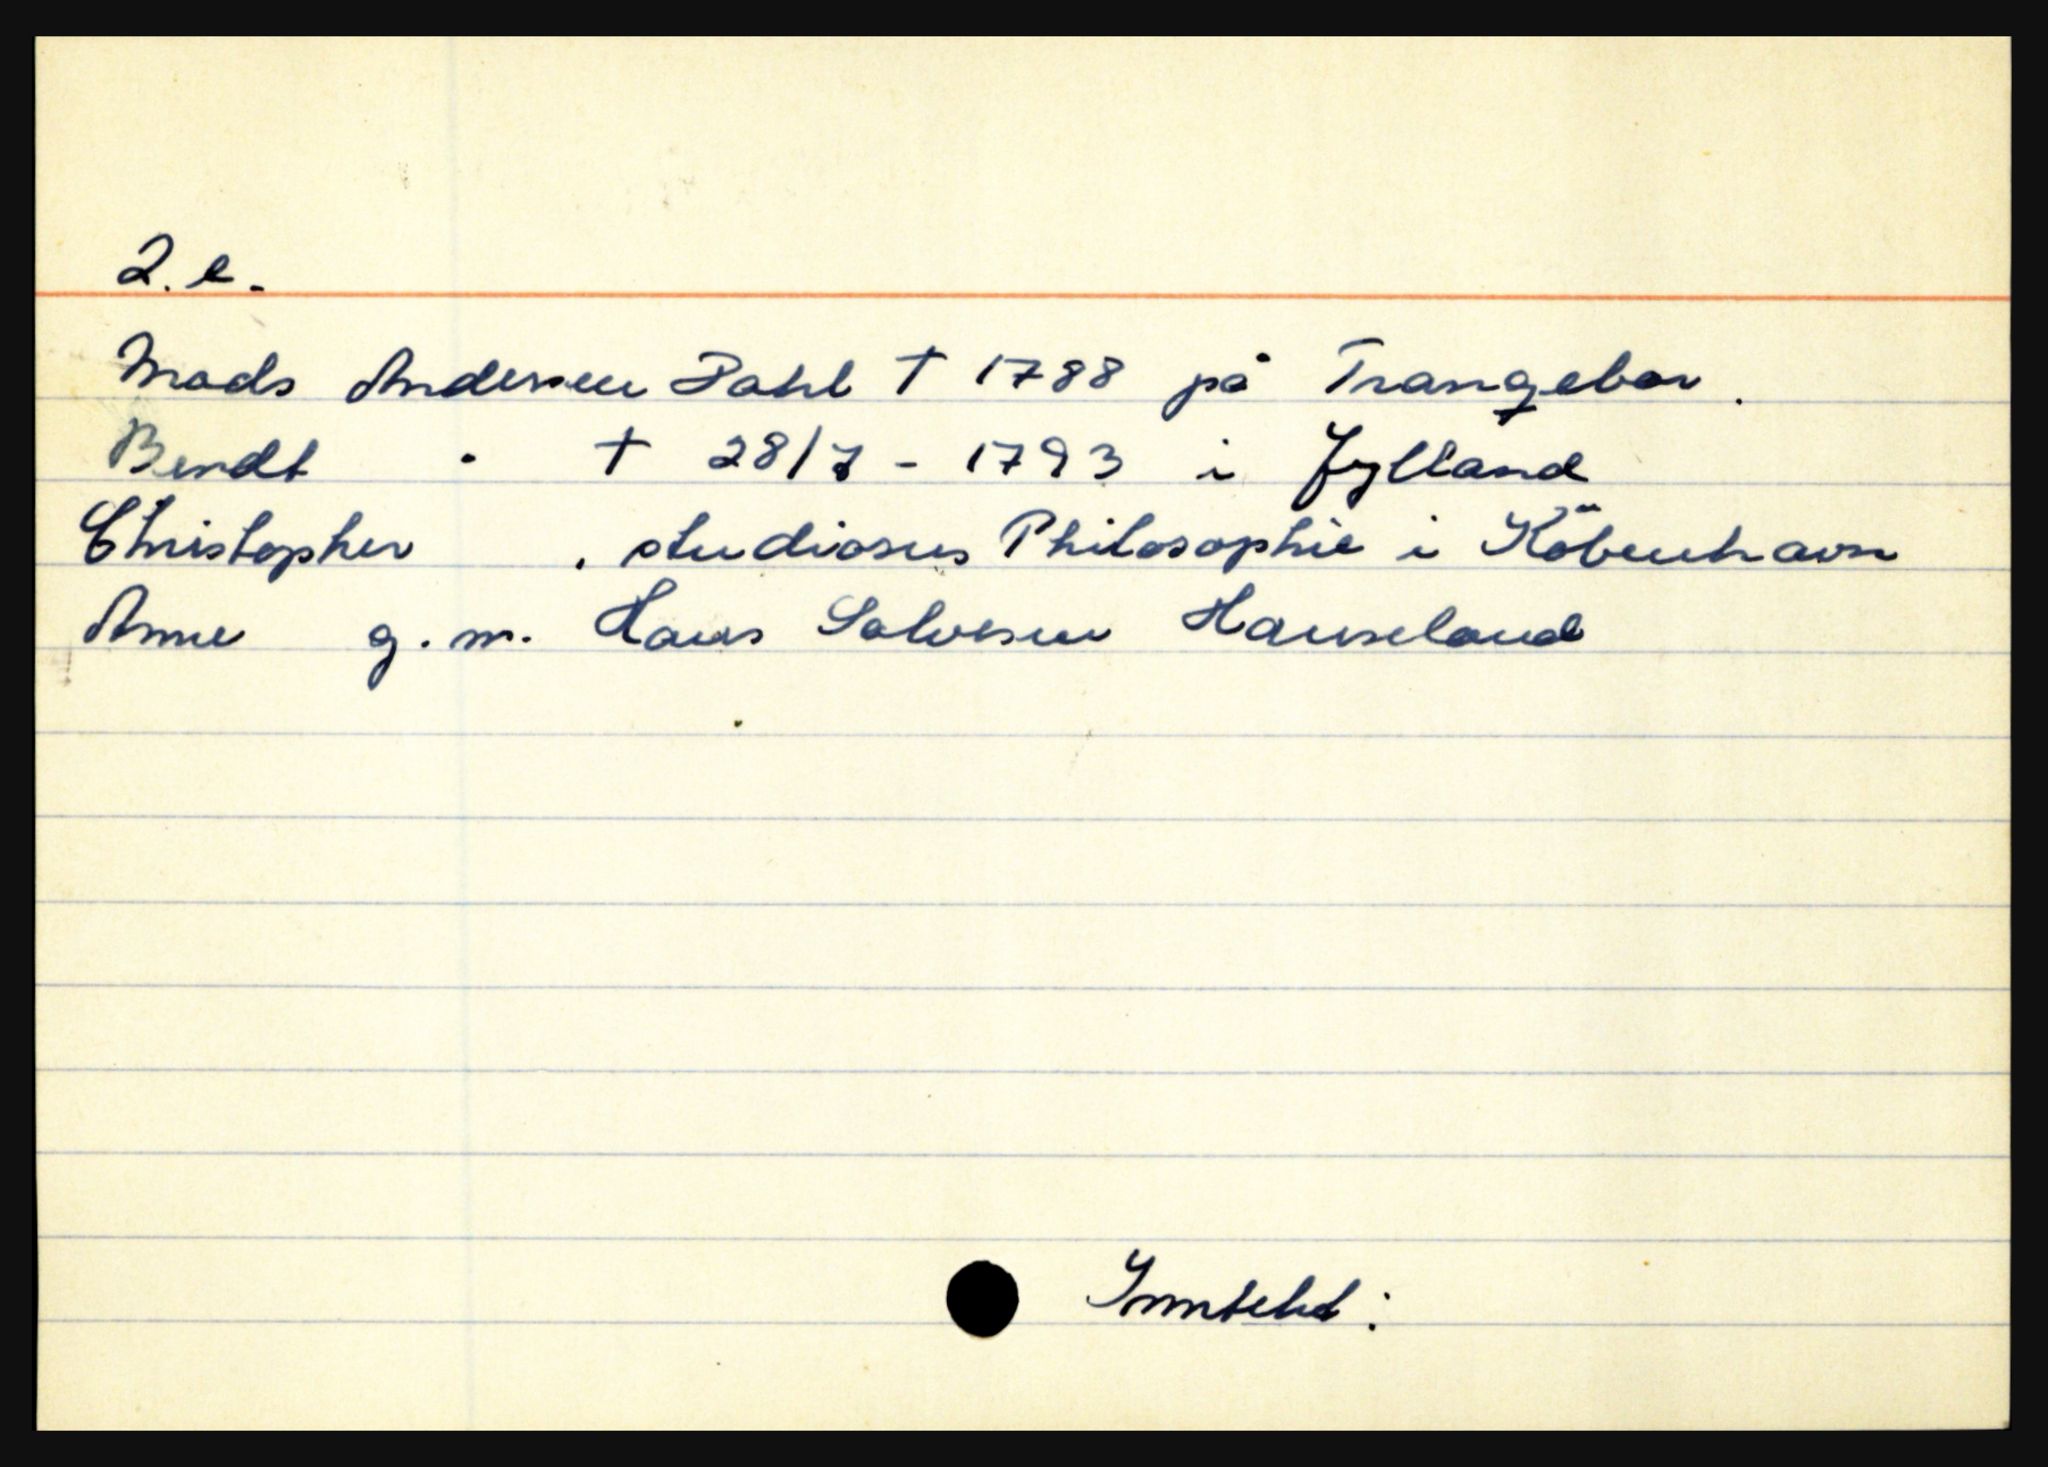 2. e.
Mads Andersen Dahl † 1788 på Trangebar.
Bendt " † 28/7 - 1793 i Jylland
Christopher . studiosus Philosophie i Köbenhavn
Anne g. m. Hans Salvesen Hauseland
Inntekt: